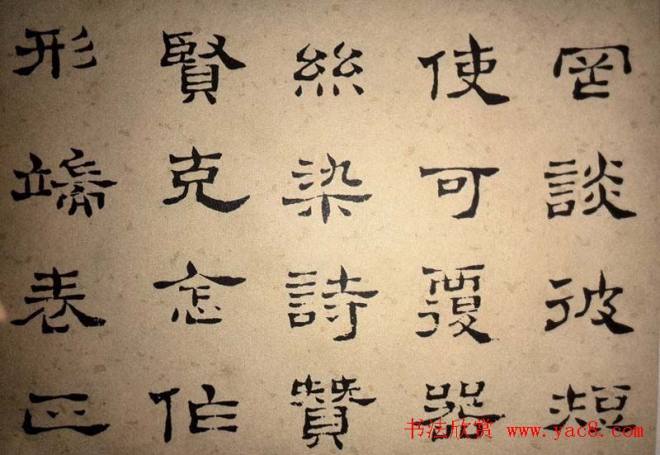 罔談彼短
使可覆器
絲染詩贊
賢克念作
形端表正
书法欣赏 www.yac8.com